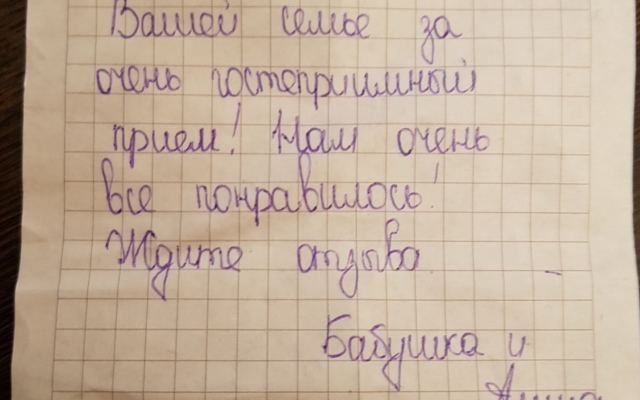 Вашей семье за
очень гостеприимный
прием! Нам очень
все понравилось!
Ждите отзыва
Бабушка и